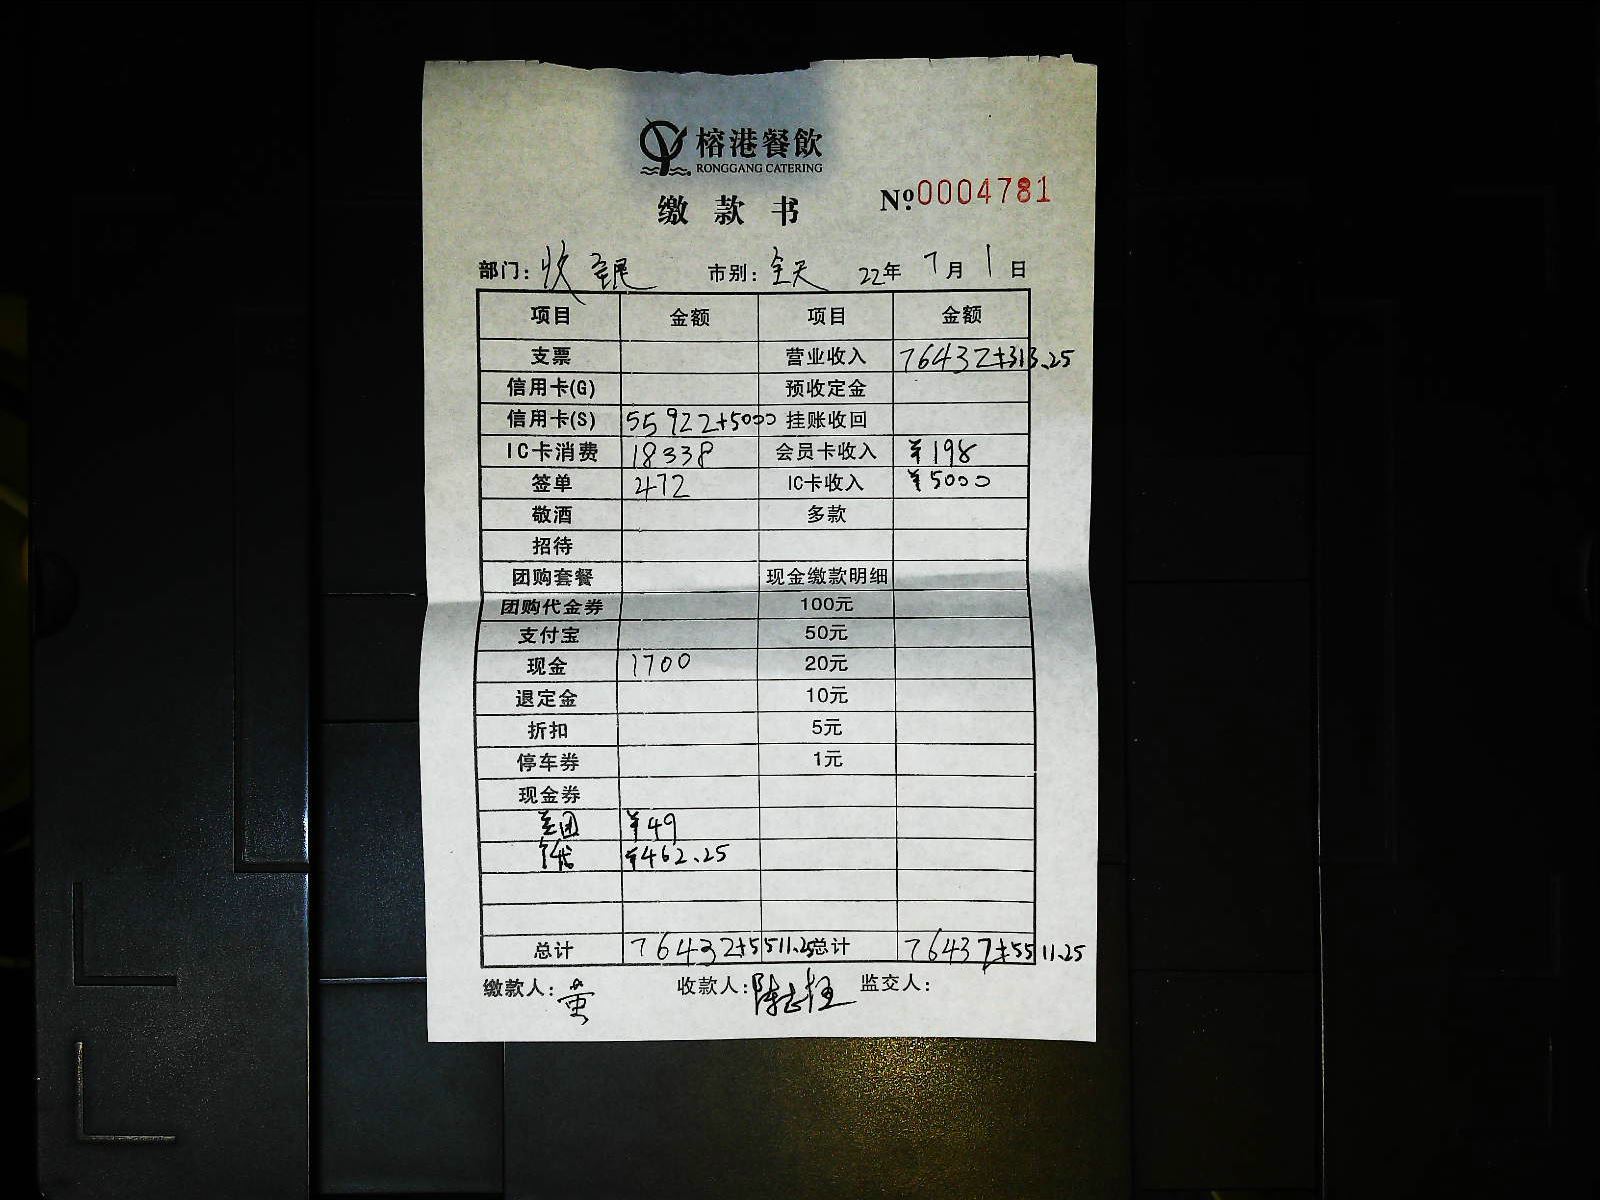 榕港餐飲
RONGGANG CATERING
缴款书 №0004781
部门: 收银 市别: 全天 22年 7月 1日
项目 金额 项目 金额
支票 营业收入 76432+313.25
信用卡(G) 预收定金
信用卡(S) 55922+5000 挂账收回
IC卡消费 18338 会员卡收入 ¥198
签单 472 IC卡收入 ¥5000
敬酒 多款
招待
团购套餐 现金缴款明细
团购代金券 100元
支付宝 50元
现金 1700 20元
退定金 10元
折扣 5元
停车券 1元
现金券
美团 ¥49
¥462.25
总计 76432+5511.25 总计 76432+5511.25
缴款人: 收款人: 监交人: